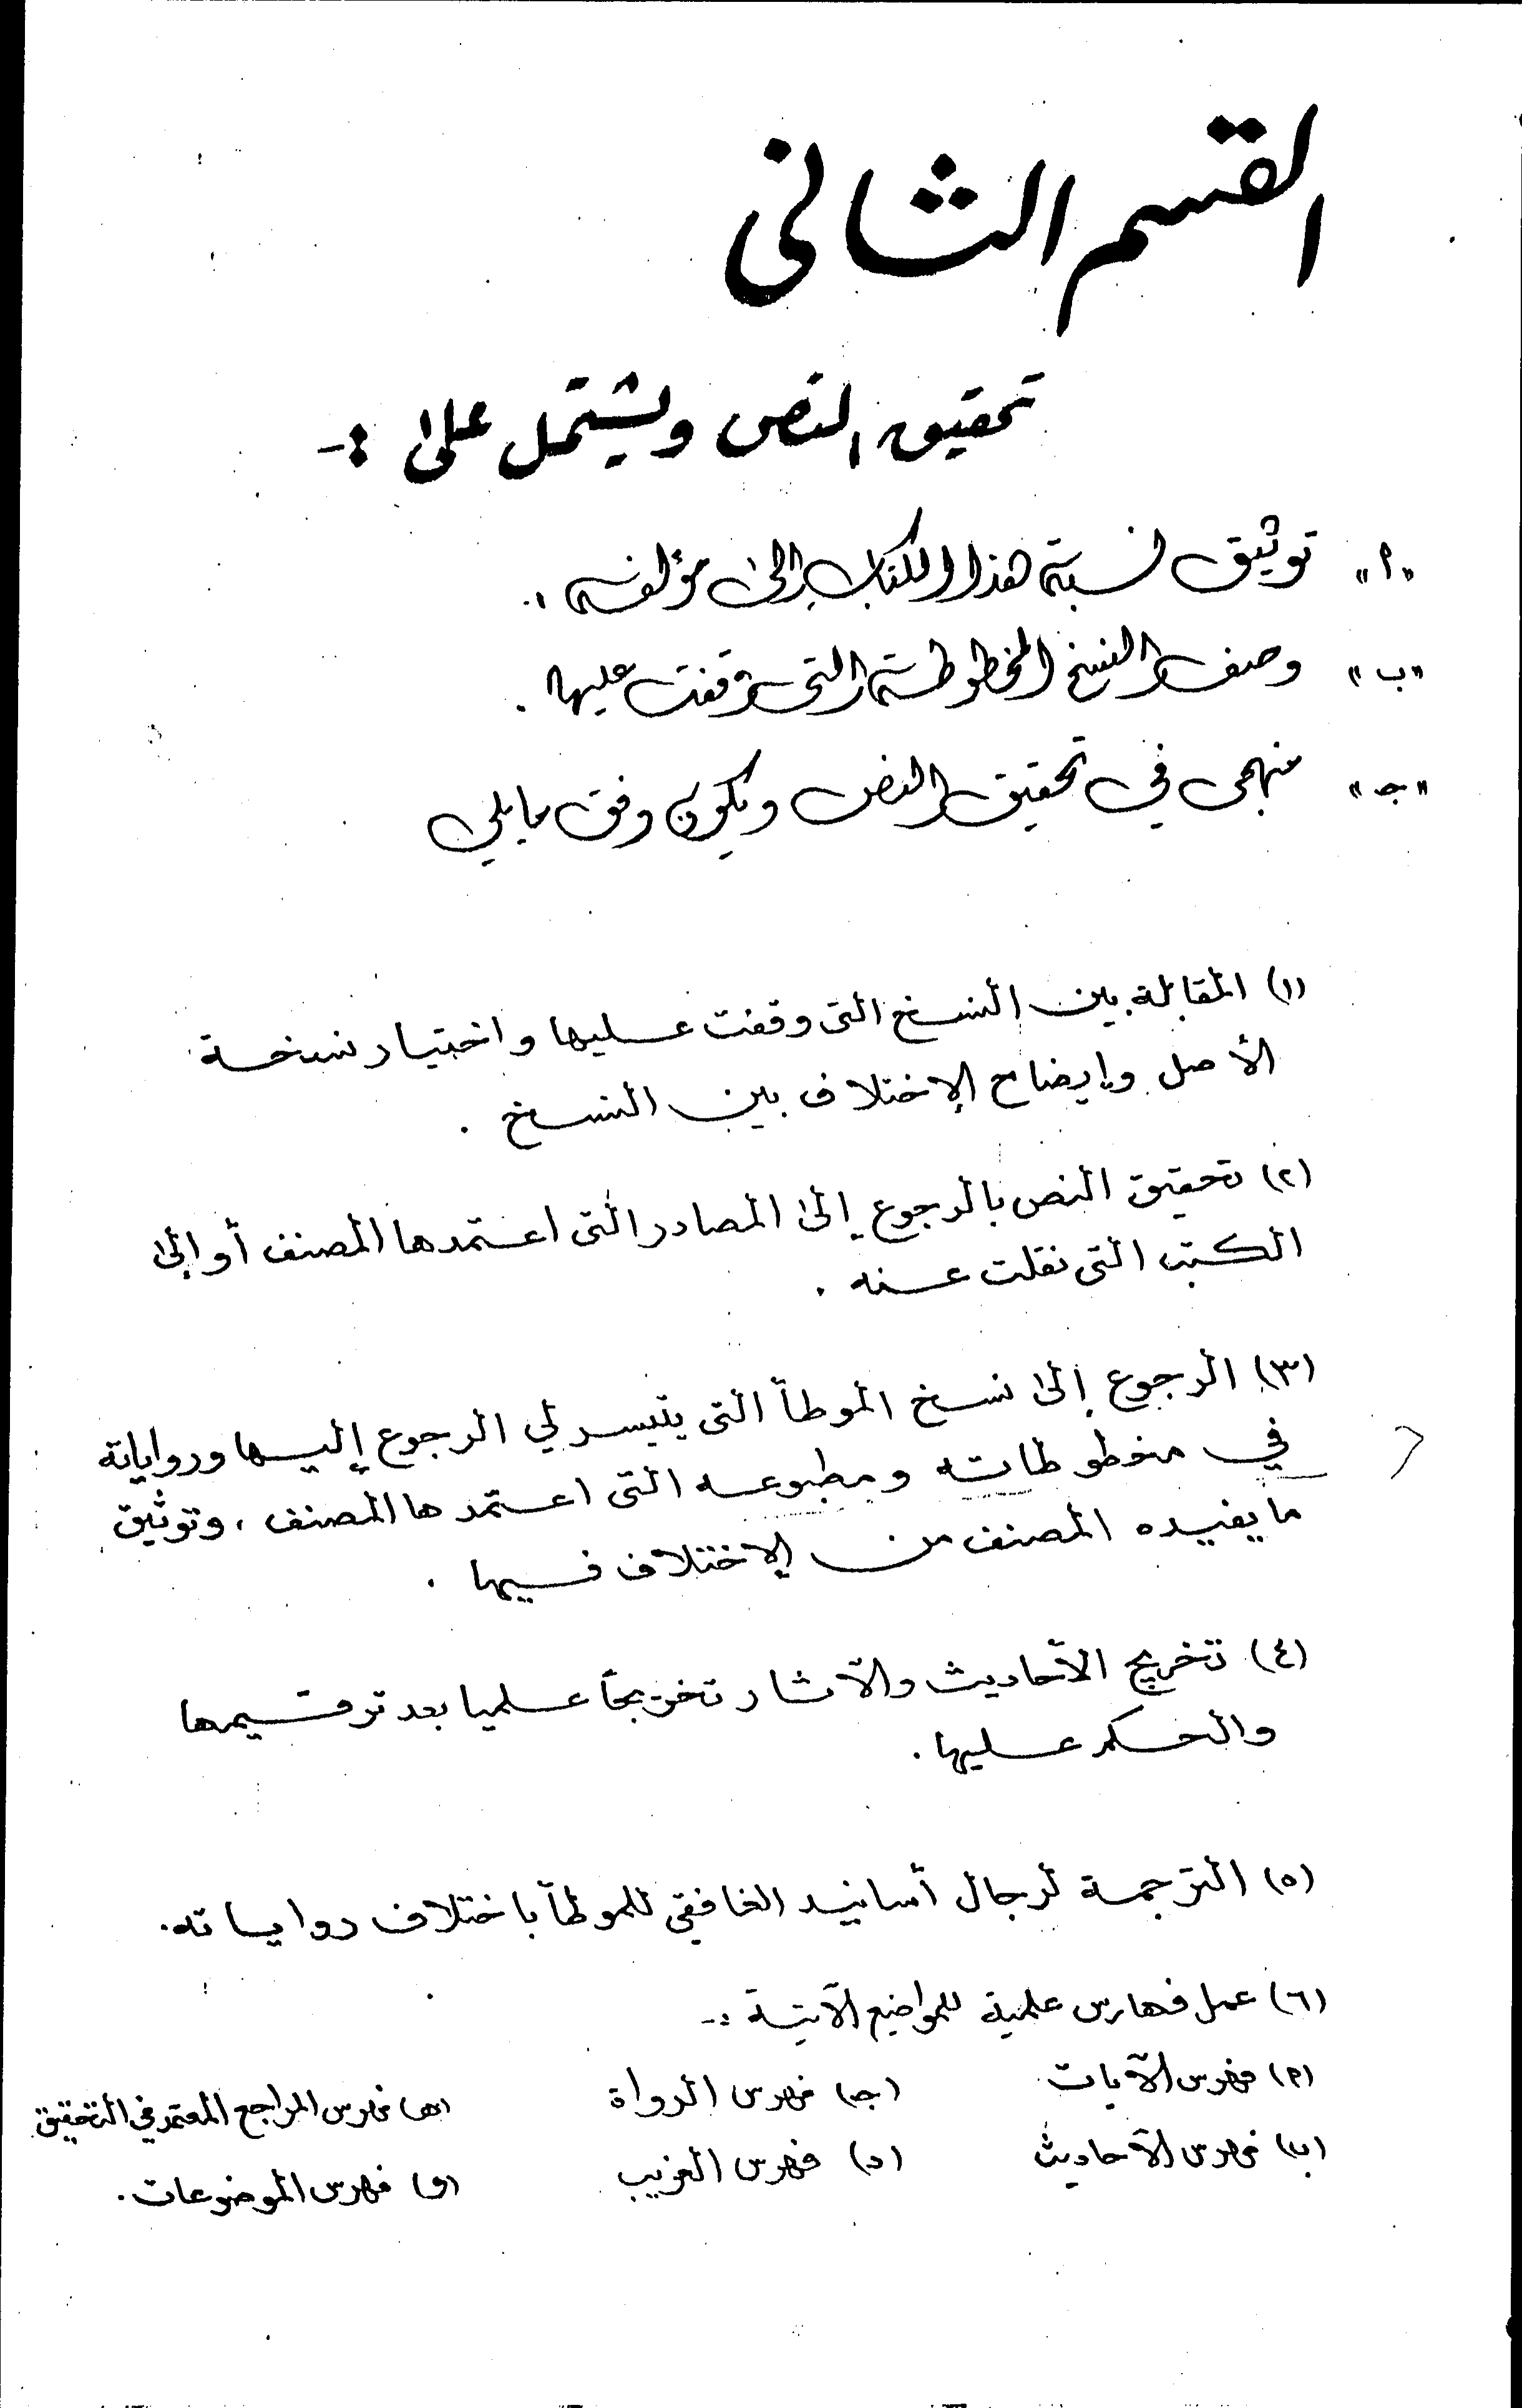 القسم الثانى
تحقيق النص ويشتمل على :-
"أ" توثيق نسبة هذا الكتاب إلى مؤلفه .
"ب" وصف النسخ المخطوطة التى وقفت عليها .
"جـ" منهجى في تحقيق النص ويكون وفق مايلي
(١) المقابلة بين النسخ التى وقفت عليها واختيار نسخة
الأصل وإيضاح الإختلاف بين النسخ .
(٢) تحقيق النص بالرجوع إلى المصادر التى اعتمدها المصنف أو إلى
الكتب التى نقلت عنه .
(٣) الرجوع إلى نسخ الموطأ التى يتيسر لي الرجوع إليها ورواياته
في مخطوطاته ومطبوعه التى اعتمدها المصنف ، وتوثيق
مايفيده المصنف من الإختلاف فيها .
(٤) تخريج الأحاديث والآثار تخريجاً علميا بعد ترقيمها
والحكم عليها .
(٥) الترجمة لرجال أسانيد الغافقي للموطأ باختلاف رواياته .
(٦) عمل فهارس علمية للمواضيع الآتية :-
(أ) فهرس الآيات (جـ) فهرس الرواة (هـ) فهرس المراجع المعتمد في التحقيق
(ب) فهرس الأحاديث (د) فهرس الغريب (و) فهرس الموضوعات .